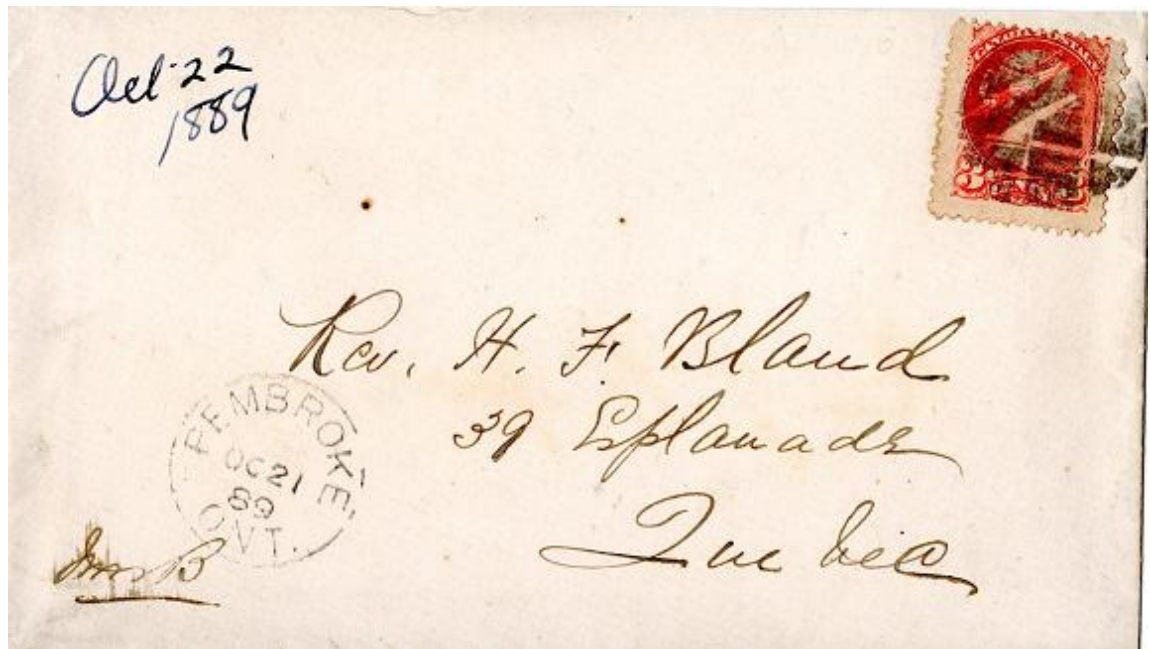 Oct 22
1889
CANADA POSTAGE
3 CENTS 3
Rev. H. F. Bland
39 Esplanade
Quebec
PEMBROKE,
OC 21
89
ONT.
B